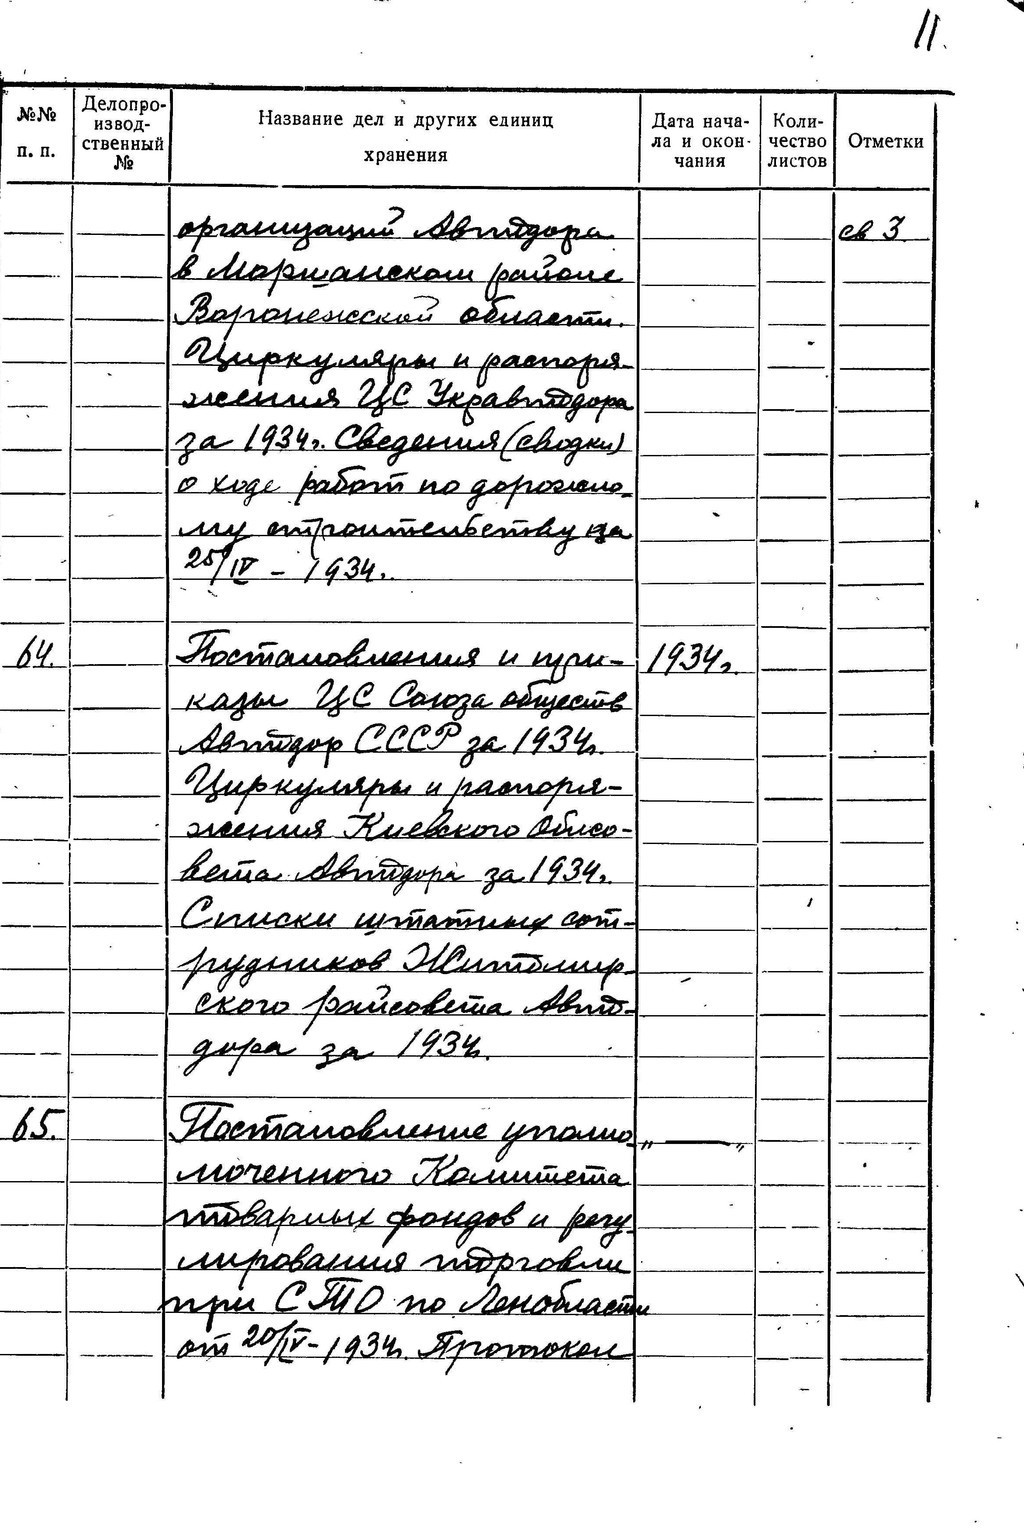 11.
№№ п. п.
Делопро-
извод-
ственный
№
Название дел и других единиц
хранения
Дата нача-
ла и окон-
чания
Коли-
чество
листов
Отметки
организаций Автодора св 3
в Моршанском районе
Воронежской области.
Циркуляры и распоря-
жения ЦС Укравтодора
за 1934г. Сведения (сводки)
о ходе работ по дорожно-
му строительству на
25/IV - 1934г.
64. Постановления и при- 1934г.
казы ЦС Союза обществ
Автодор СССР за 1934г.
Циркуляры и распоря-
жения Киевского Облсо-
вета Автодора за 1934г.
Списки штатных сот-
рудников Житомир-
ского райсовета Авто-
дора за 1934г.
65. Постановление уполно- „ — „
моченного Комитета
товарных фондов и регу-
лирования торговли
при СТО по Ленобласти
от 20/IV - 1934г. Протокол